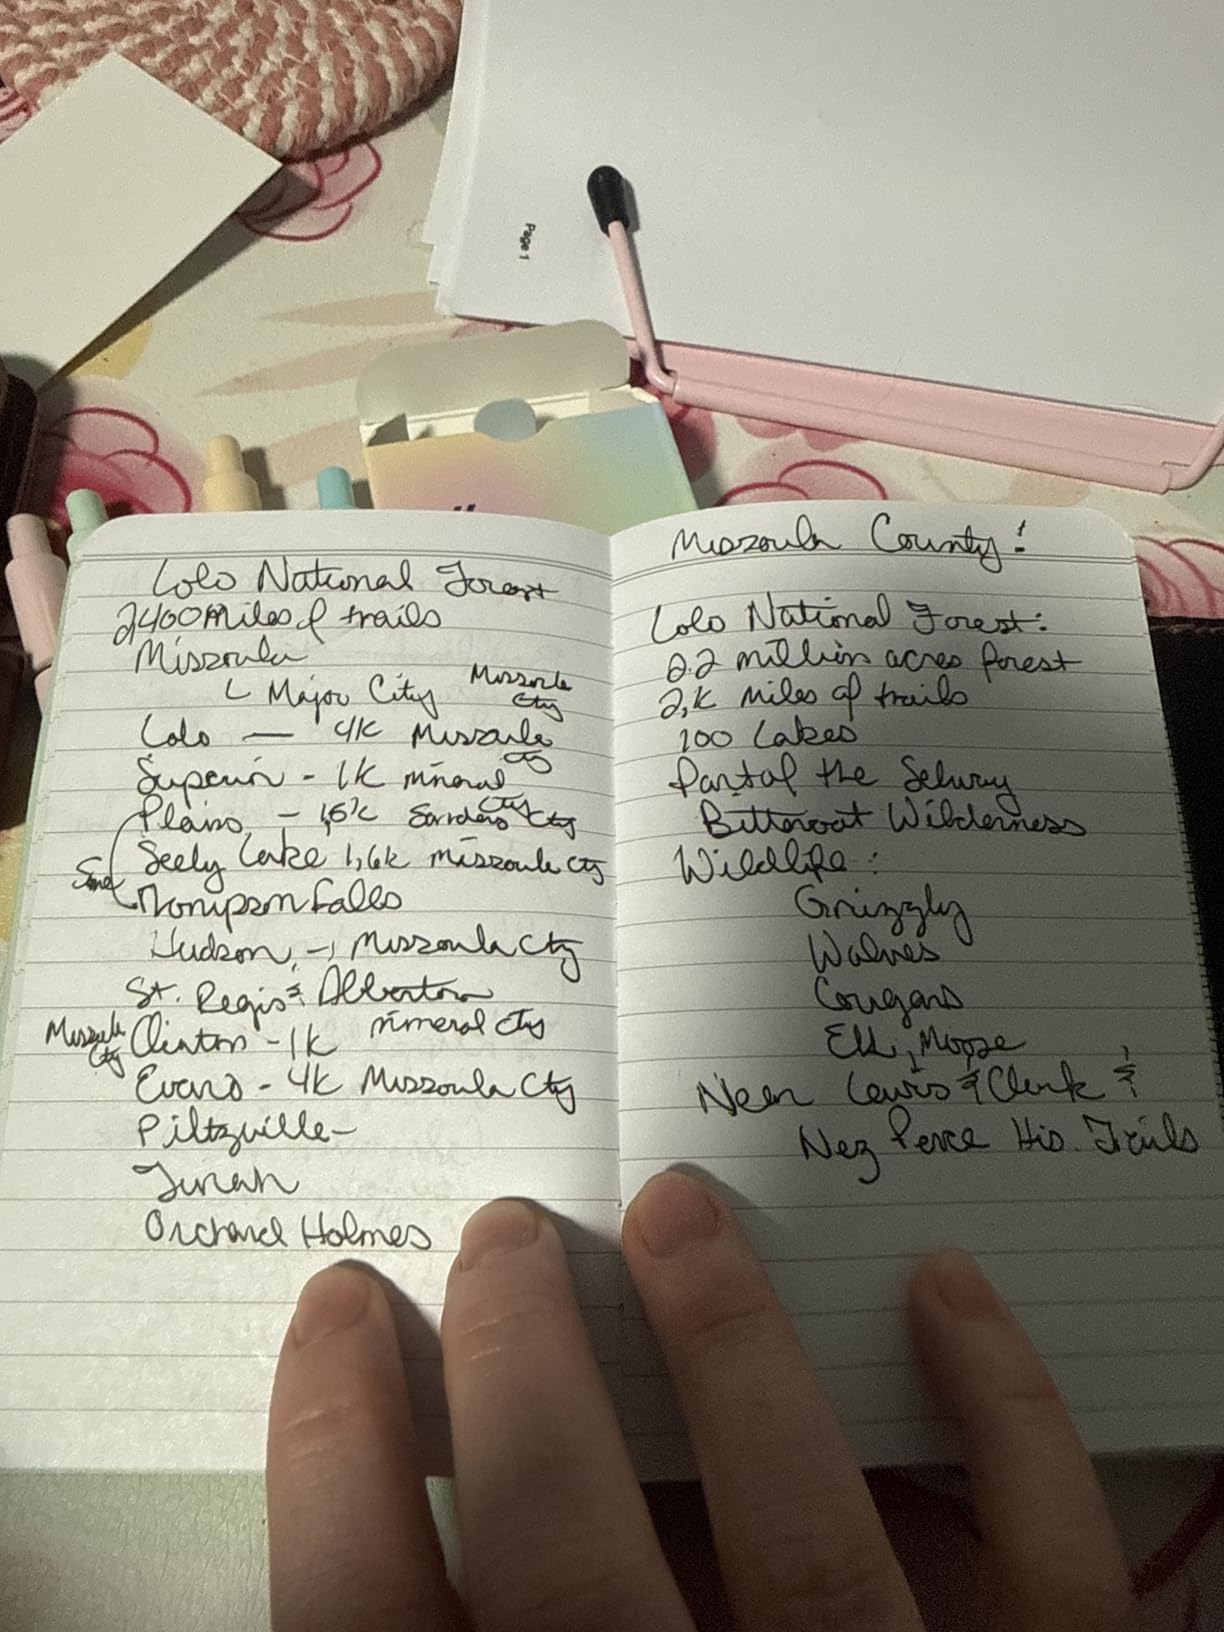 Page 1
Lolo National Forest
2400 Miles of trails
Missoula
Major City Missoula Cty
Lolo — 4K Missoula Cty
Superior - 1K mineral Cty
Plains, - 1,5K Sanders Cty
Seely Lake 1,6K missoula cty
Same Thompson Falls
Hudson, - Missoula Cty
St. Regis & Alberton
mineral Cty
Missoula Cty Clinton - 1K
Evaro - 4K Missoula Cty
Piltzville -
Turah
Orchard Holmes
Missoula County!
Lolo National Forest:
2.2 million acres forest
2,K miles of trails
100 Lakes
Part of the Selway
Bitteroot Wilderness
Wildlife:
Grizzly
Wolves
Cougars
Elk, Moose
Near Lewis & Clark &
Nez Perce His. Trails